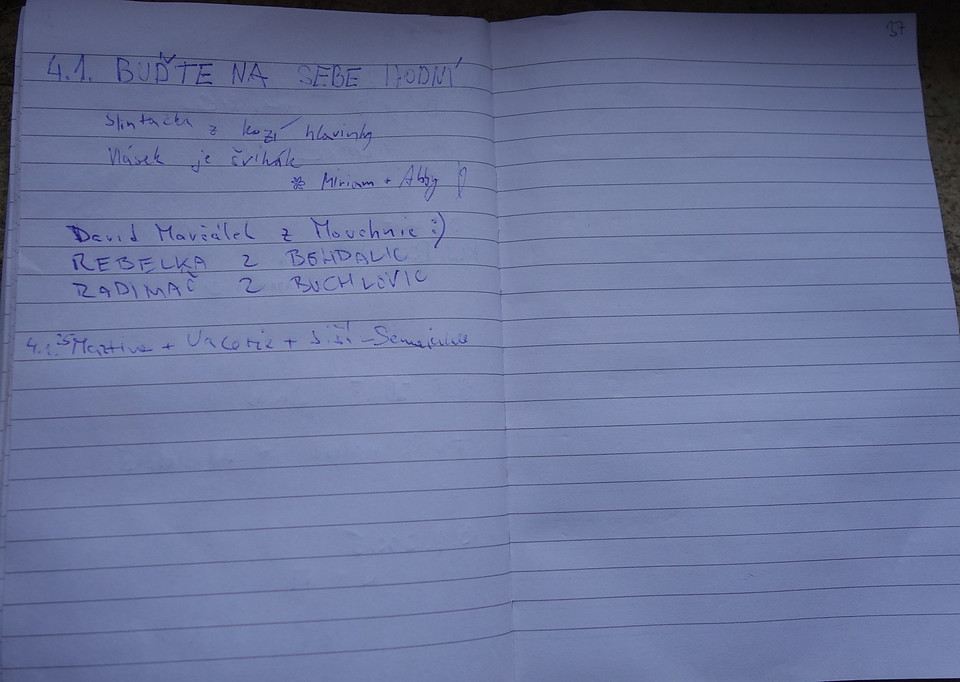 37
4.1. BUĎTE NA SEBE HODNÍ
Slintačka z kozí hlavinky
Vlásek je švihák
* Miriam + Abby
David Marčálek z Mouchnic :)
REBELKA Z BOHDALIC
RADIMAČ Z BUCHLOVIC
4.1. Martina + + Jiří